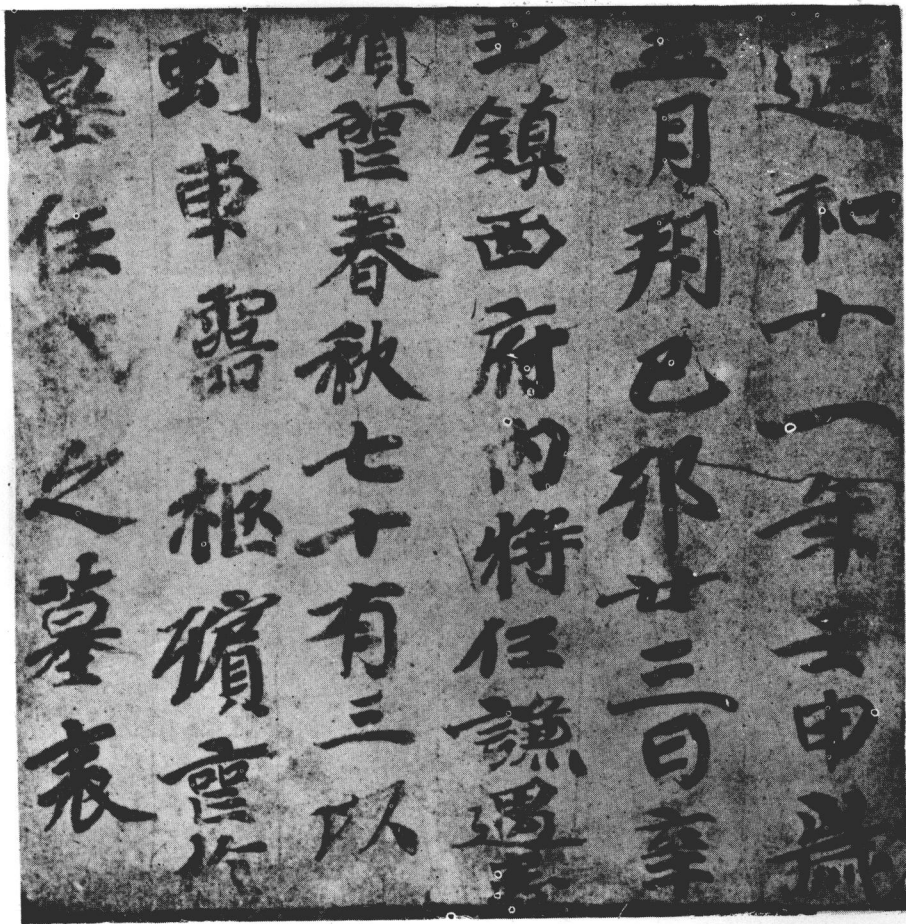 延和十一年壬申歲
五月朔己卯廿三日辛
丑鎮西府內將任謙遇
殞喪春秋七十有三以
虯車靈柩殯喪於
墓任之墓表